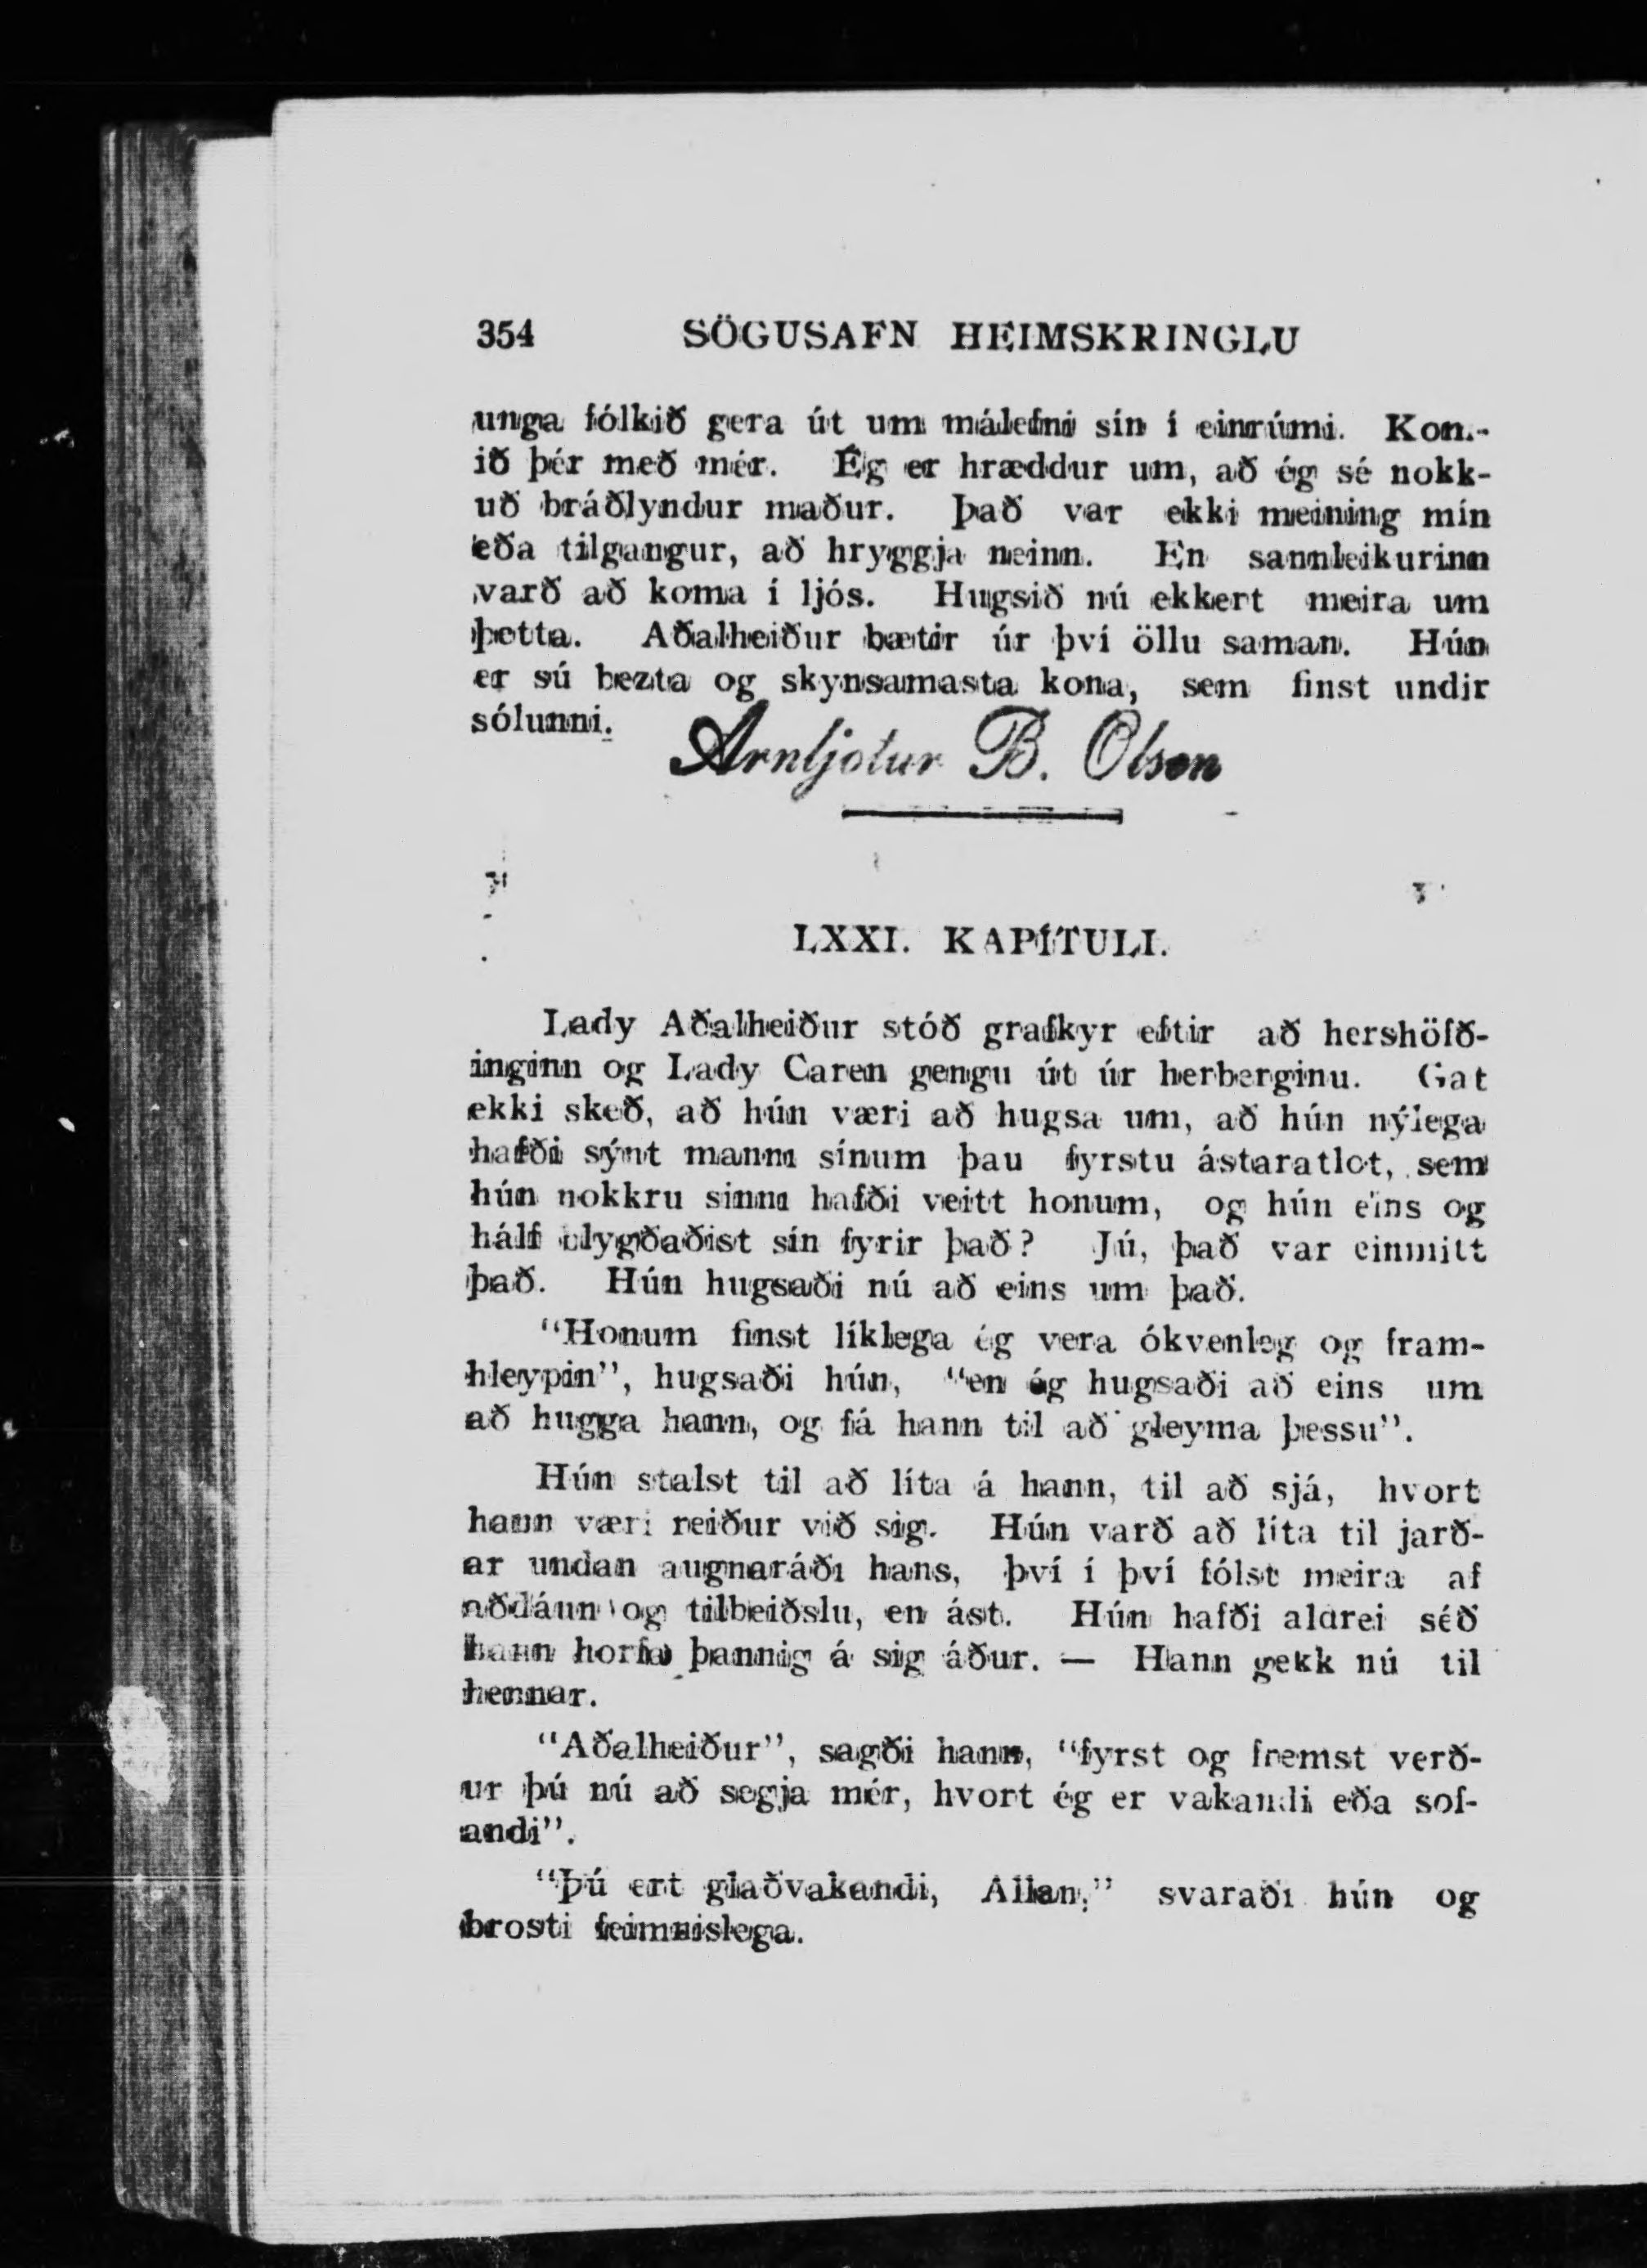 354 SÖGUSAFN HEIMSKRINGLU
unga fólkið gera út um málefni sín í einrúmi. Kom-
ið þér með mér. Ég er hræddur um, að ég sé nokk-
uð bráðlyndur maður. Það var ekki meining mín
eða tilgangur, að hryggja neinn. En sannleikurinn
varð að koma í ljós. Hugsið nú ekkert meira um
þetta. Aðalheiður bætir úr því öllu saman. Hún
er sú bezta og skynsamasta kona, sem finst undir
sólunni.
Arnljotur B. Olson
LXXI. KAPÍTULI.
Lady Aðalheiður stóð grafkyr eftir að hershöfð-
inginn og Lady Caren gengu út úr herberginu. Gat
ekki skeð, að hún væri að hugsa um, að hún nýlega
hafði sýnt manni sínum þau fyrstu ástaratlot, sem
hún nokkru sinni hafði veitt honum, og hún eins og
hálf blygðaðist sín fyrir það? Jú, það var einmitt
það. Hún hugsaði nú að eins um það.
“Honum finst líklega ég vera ókvenleg og fram-
hleypin”, hugsaði hún, “en ég hugsaði að eins um
að hugga hann, og fá hann til að gleyma þessu”.
Hún stalst til að líta á hann, til að sjá, hvort
hann væri reiður við sig. Hún varð að líta til jarð-
ar undan augnaráði hans, því í því fólst meira af
aðdáun og tilbeiðslu, en ást. Hún hafði aldrei séð
hann horfa þannig á sig áður. — Hann gekk nú til
hennar.
“Aðalheiður”, sagði hann, “fyrst og fremst verð-
ur þú nú að segja mér, hvort ég er vakandi eða sof-
andi”.
“Þú ert glaðvakandi, Allan,” svaraði hún og
brosti feimnislega.